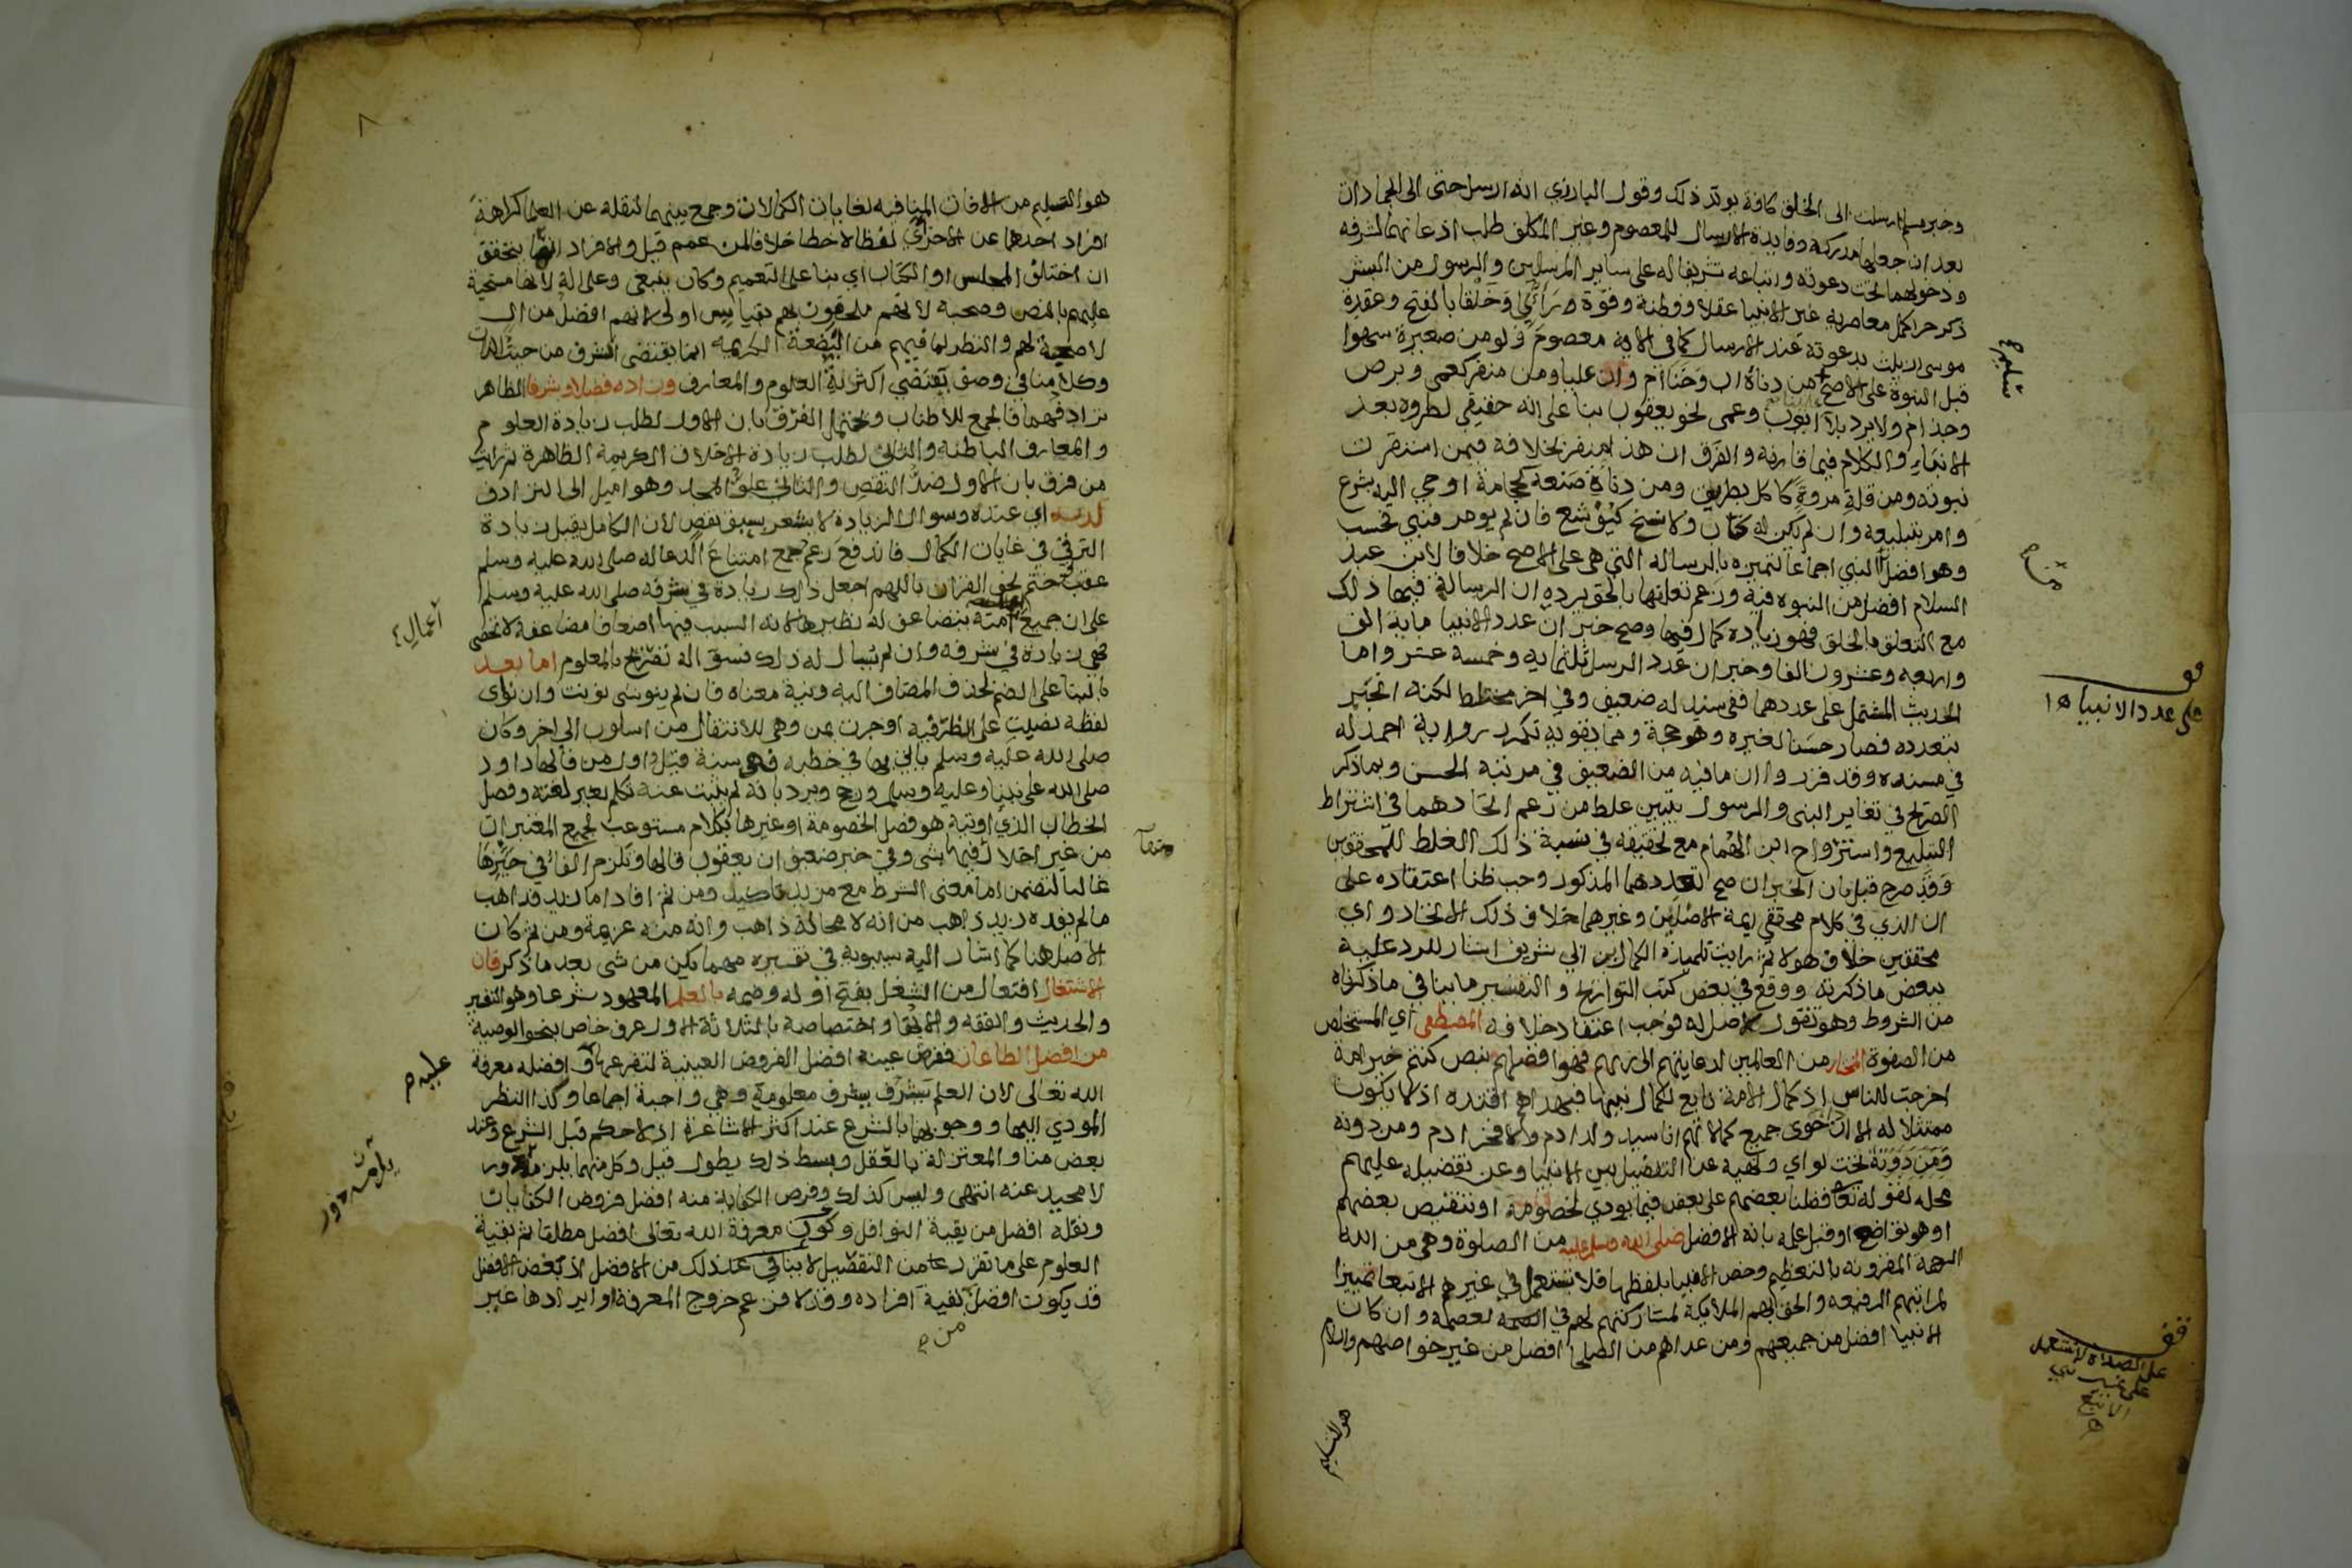 وخبر مسلم ارسلت الى الخلق كافة يويد ذلك وقول البارزي انه ارسل حتى الى الجمادات
بعد ان جعلها مدركة وفايدة الارسال للمعصوم وغير المكلف طلب اذعانهما لشرفه
ودخولهما تحت دعوته واتباعه تشريفا له على ساير المرسلين والرسول من البشر
ذكر حر اكمل معاصريه غير الانبيا عقلا وفطنة وقوة وراي وخلقا بالفتح وعقدة
موسى ازيلت بدعوته عند الارسال كما في الاية معصوم ولو من صغيرة سهوا
قبل النبوة على الاصح من دناة اب وخنا ام وان عليا ومن منفر كعمى وبرص
وجذام ولا يرد بلا ايوب وعمى نحو يعقوب بنا على انه حقيقي لطروه بعد
الانباء والكلام فيما قارنه والفرق ان هذا منفر بخلافه فيمن استقرت
نبوته ومن قلة مروة كاكل بطريق ومن دناة صنعة كحجامة اوحي اليه بشرع
وامر بتبليغه وان لم يكن له كتاب ولا نسخ كيوشع فان لم يومر فنبي فحسب
وهو افضل النبي اجماعا لتميزه بالرساله التي هي على الاصح خلافا لابن عبد
السلام افضل من النبوه فيه وزعم تعلقها بالحق يرده ان الرسالة فيها ذلك
مع التعلق بالخلق فهو زيادة كمال فيها وصح خبر ان عدد الانبيا ماية الف
واربعه وعشرون الفا وخبر ان عدد الرسل ثلثماية وخمسة عشر واما
الحديث المشتمل على عددهما ففي سند له ضعيف وفي اخر مختلط لكنه انجبر
بتعدده فصار حسنا لغيره وهو حجة ومما يقويه تكرر رواية احمد له
في مسنده وقد قرروا ان ما فيه من الضعيف في مرتبة الحسن وبما ذكر
الصريح في تغاير النبي والرسول يتبين غلط من زعم اتحادهما في اشتراط
التبليغ واسترواح ابن الهمام مع تحقيقه في نسبة ذلك الغلط للمحققين
وقد صرح قبل بان الخبر ان صح تعددهما المذكور وجب ظنا اعتقاده على
ان الذي في كلام محققي ايمة الاصلين وغيرهما خلاف ذلك الاتحاد واي
محققين خلاف هولا ثم رايت تلميذه الكمال بن ابي شريف اشار للرد عليه
ببعض ما ذكرته ووقع في بعض كتب التواريخ والتفسير ما ينافي ما ذكرناه
من الشروط وهو تقول لا اصل له فوجب اعتقاد خلافه المصطفى اي المستخلص
من الصفوة المختار من العالمين لدعايتهم الى ربهم فهو افضلهم بنص كنتم خير امة
اخرجت للناس اذ كمال الامة تابع لكمال نبيها فبهداهم اقتده اذ لا يكون
ممتثلا له الا ان حوى جميع كمالاتهم انا سيد ولد ادم ولا فخر ادم ومن دونه
ومن دونه تحت لواي ونهيه عن التفضيل بين الانبيا وعن تفضيله عليهم
محله لقوله تعا فضلنا بعضهم على بعض فيما يودي لخصومة او تنقيص بعضهم
او هو تواضع او قبل علمه بانه الافضل صلى الله وسلم عليه من الصلوة وهي من الله
الرحمة المقرونه بالتعظيم وخص الانبيا بلفظها فلا تستعمل في غيرهم الا تبعا تمييزا
لمراتبهم الرفيعه والحق بهم الملايكة لمشاركتهم لهم في العصمة وان كان
الانبيا افضل من جميعهم ومن عداهم من الصلحا افضل من غير خواصهم والسلام
هو التسليم
قف
على عدد الانبيا
قف
على الصلاة لا تستعمل
على غير نبي
الا تبع
٨
هو التسليم من الافات المنافيه لغايات الكمالات وجمع بينهما لنقله عن العلما كراهة
افراد احدهما عن الاخر اي لفظا لا خطا خلافا لمن عمم قيل والافراد انما يتحقق
ان اختلف المجلس او الكتاب اي بنا على التعميم وكان ينبغي وعلى اله لانها مستحبة
عليهم بالنص وصحبه لانهم ملحقون بهم بقياس اولى لانهم افضل من ال
لا صحبة لهم والنظر لما فيهم من البضعة الكريمه انما يقتضي الشرف من حيث الذات
وكلامنا في وصف يقتضي اكثرية العلوم والمعارف وزاده فضلا وشرفا الظاهر
ترادفهما فالجمع للاطناب ويحتمل الفرق بان الاول لطلب زيادة العلوم
والمعارف الباطنة والثاني لطلب زيادة الاخلاق الكريمة الظاهرة ثم رايت
من فرق بان الاول ضد النقص والثاني علو المجد وهو اميل الى الترادف
لديه اي عنده وسوال الزيادة لا يشعر بسبق نقص لان الكامل يقبل زيادة
الترقي في غايات الكمال فاندفع زعم جمع امتناع الدعا له صلى الله عليه وسلم
عقب ختم نحو القران باللهم اجعل ذلك زيادة في شرفه صلى الله عليه وسلم
على ان جميع امته يتضاعف له نظيرها لانه السبب فيها اضعافا مضاعفة لا تحصى
فهي زيادة في شرفه وان لم يسال له ذلك فسؤاله تصريح بالمعلوم اما بعد
بالبنا على الضم لحذف المضاف اليه ونية معناه فان لم ينو شي نونت وان نوى
لفظه نصبت على الظرفيه او جرت بمن وهي للانتقال من اسلوب الى اخر وكان
صلى الله عليه وسلم ياتي بها في خطبه فهي سنة قيل واول من قالها داود
صلى الله على نبينا وعليه وسلم ورجح ويرد بانه لم يثبت عنه تكلم بغير لغته وفصل
الخطاب الذي اوتيه هو فصل الخصومة او غيرها بكلام مستوعب لجميع المعتبرات
من غير اخلال فيها بشي وفي خبر ضعيف ان يعقوب قالها وتلزم الفا في حيزها
غالبا لتضمن اما معنى الشرط مع مزيد تاكيد ومن ثم افاد اما زيد فذاهب
ما لم يفده زيد ذاهب من انه لا محالة ذاهب وانه منه عزيمة ومن ثم كان
الاصل هنا كما اشار اليه سيبويه في تفسيره مهما يكن من شي بعد ما ذكر فان
الاشتغال افتعال من الشغل بفتح اوله وضمه بالعلم المعهود شرعا وهو التفسير
والحديث والفقه والاتها واختصاصه بالثلاثة الاول عرف خاص بنحو الوصية
من افضل الطاعات ففرض عينه افضل الفروض العينية لتفرعها افضله معرفة
الله تعالى لان العلم يشرف بشرف معلومه وهي واجبة اجماعا وكذا النظر
المودي اليها ووجوبها بالشرع عند اكثر الاشاعرة اذ لا حكم قبل الشرع وعند
بعض منا والمعتزلة بالعقل وبسط ذلك يطول قيل وكل منهما يلزمه دور
لا محيد عنه انتهى وليس كذلك وفرض الكفاية منه افضل فروض الكفايات
ونفله افضل من بقية النوافل وكون معرفة الله تعالى افضل مطلقا ثم بقية
العلوم على ما تقرر عامن التفضيل لا ينافي عد ذلك من الافضل اذ بعض الافضل
قد يكون افضل بقية افراده وقد لا فزعم خروج المعرفة او ايرادها غير
اعمال
عليه
يلزمه دور
من